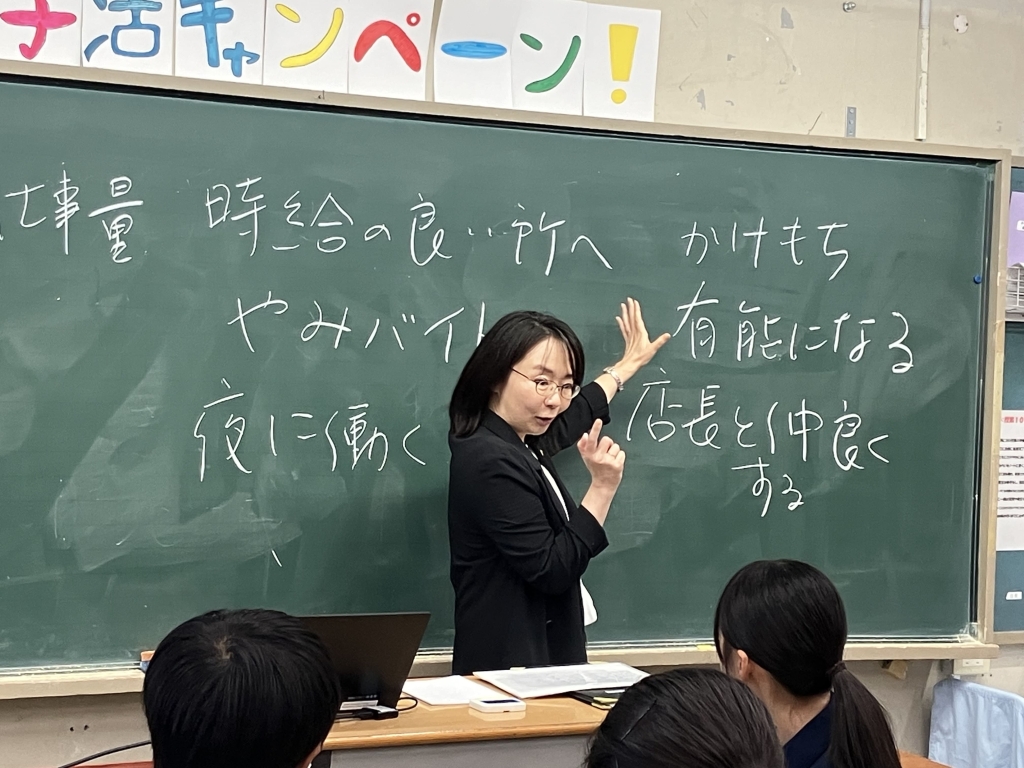 活キャンペーン!
仕事量 時給の良い所へ かけもち
やみバイト 有能になる
夜に働く 店長と仲良く
する